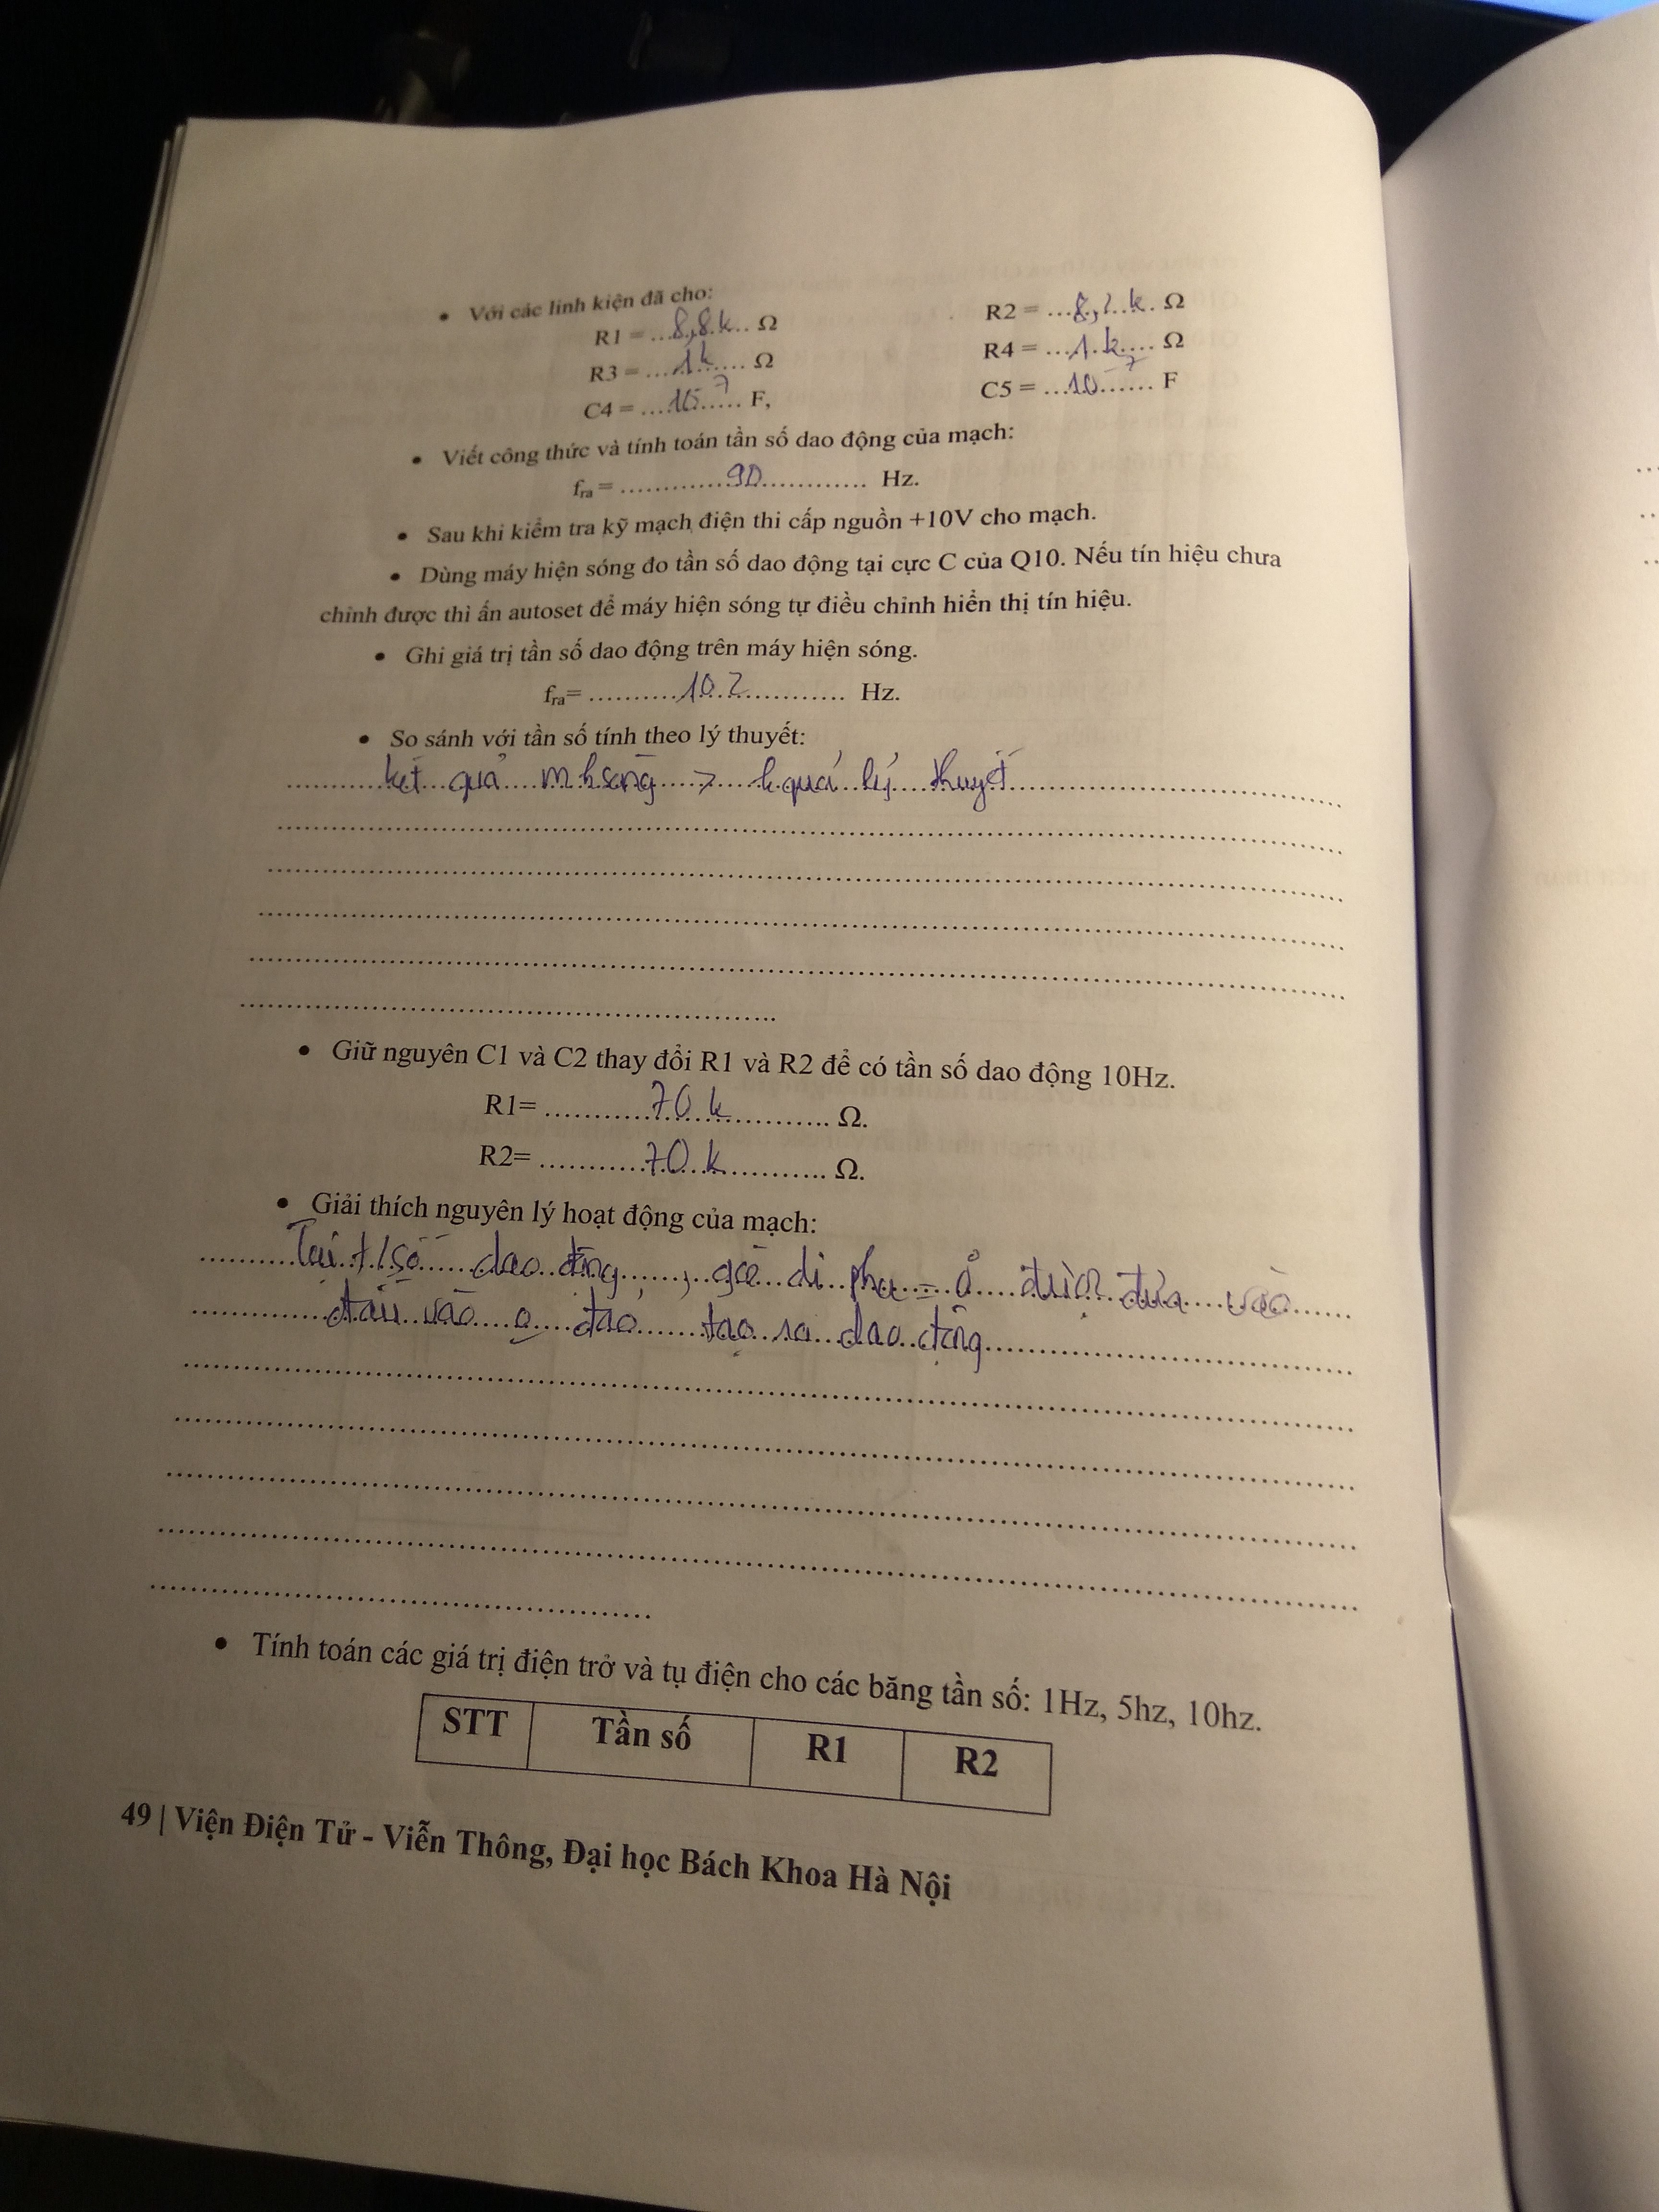 • Với các linh kiện đã cho:
R1 = ...8,8k.. Ω R2 = ...8,2.k. Ω
R3 = .....1k...... Ω R4 = ...1.k.... Ω
C4 = ....10⁻⁷..... F, C5 = ...10⁻⁷...... F
• Viết công thức và tính toán tần số dao động của mạch:
fra = ............90............ Hz.
• Sau khi kiểm tra kỹ mạch điện thi cấp nguồn +10V cho mạch.
• Dùng máy hiện sóng đo tần số dao động tại cực C của Q10. Nếu tín hiệu chưa
chỉnh được thì ấn autoset để máy hiện sóng tự điều chỉnh hiển thị tín hiệu.
• Ghi giá trị tần số dao động trên máy hiện sóng.
fra= ..........10.2............ Hz.
• So sánh với tần số tính theo lý thuyết:
kết quả m hsóng > kquả lý thuyết
• Giữ nguyên C1 và C2 thay đổi R1 và R2 để có tần số dao động 10Hz.
R1= ............70 k............ Ω.
R2= ............70 k............ Ω.
• Giải thích nguyên lý hoạt động của mạch:
Tại t/số dao động, góc di pha = 0 được đưa vào
đầu vào o đảo tạo ra dao động
• Tính toán các giá trị điện trở và tụ điện cho các băng tần số: 1Hz, 5hz, 10hz.
STT Tần số R1 R2
49 | Viện Điện Tử - Viễn Thông, Đại học Bách Khoa Hà Nội